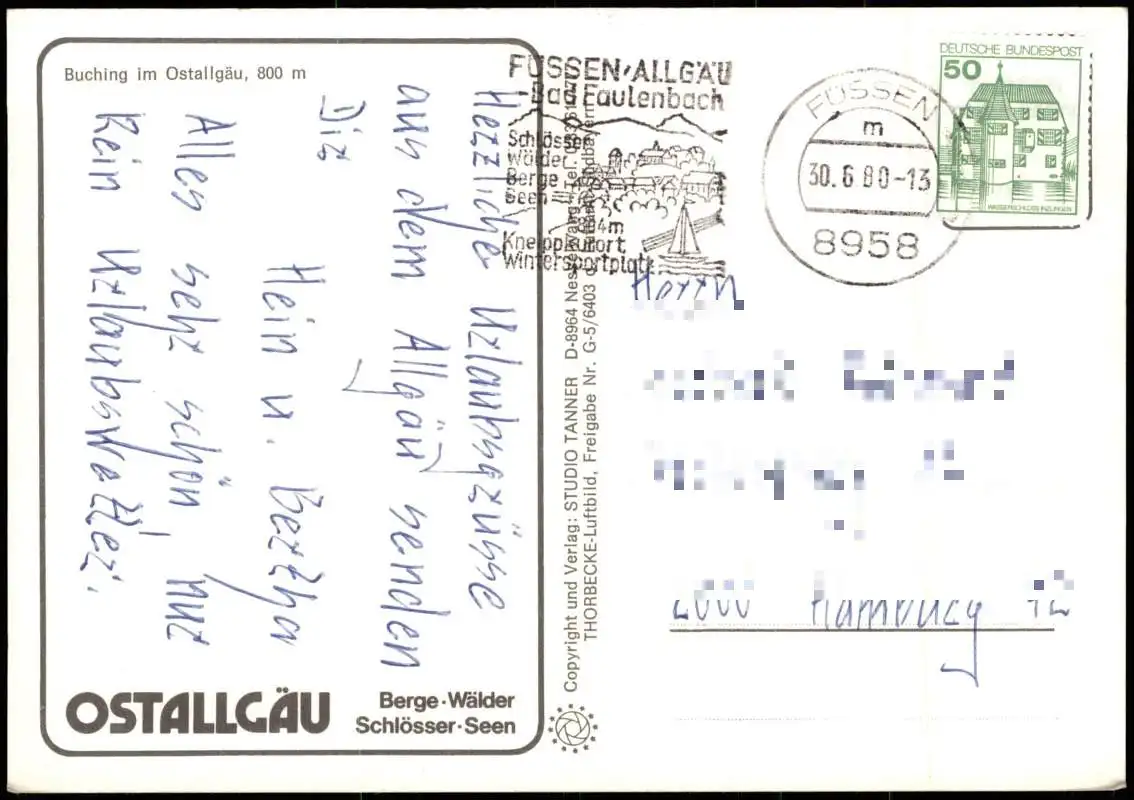 Buching im Ostallgäu, 800 m
Herzliche Urlaubsgrüsse
aus dem Allgäu senden
Dir
Hein u. Bertha
Alles sehr schön nur
Kein Urlaubswetter.
OSTALLGÄU
Berge·Wälder
Schlösser·Seen
Copyright und Verlag: STUDIO TANNER D-8964 Nesselwang
THORBECKE-Luftbild, Freigabe Nr. G-5/6403
FÜSSEN/ALLGÄU
-Bad Faulenbach
Schlösser
Wälder
Berge
Seen
Kneippkurort
Wintersportplatz
FÜSSEN
m
30.6.80-13
8958
DEUTSCHE BUNDESPOST
50
WASSERSCHLOSS INZLINGEN
Herrn
2000 Hamburg